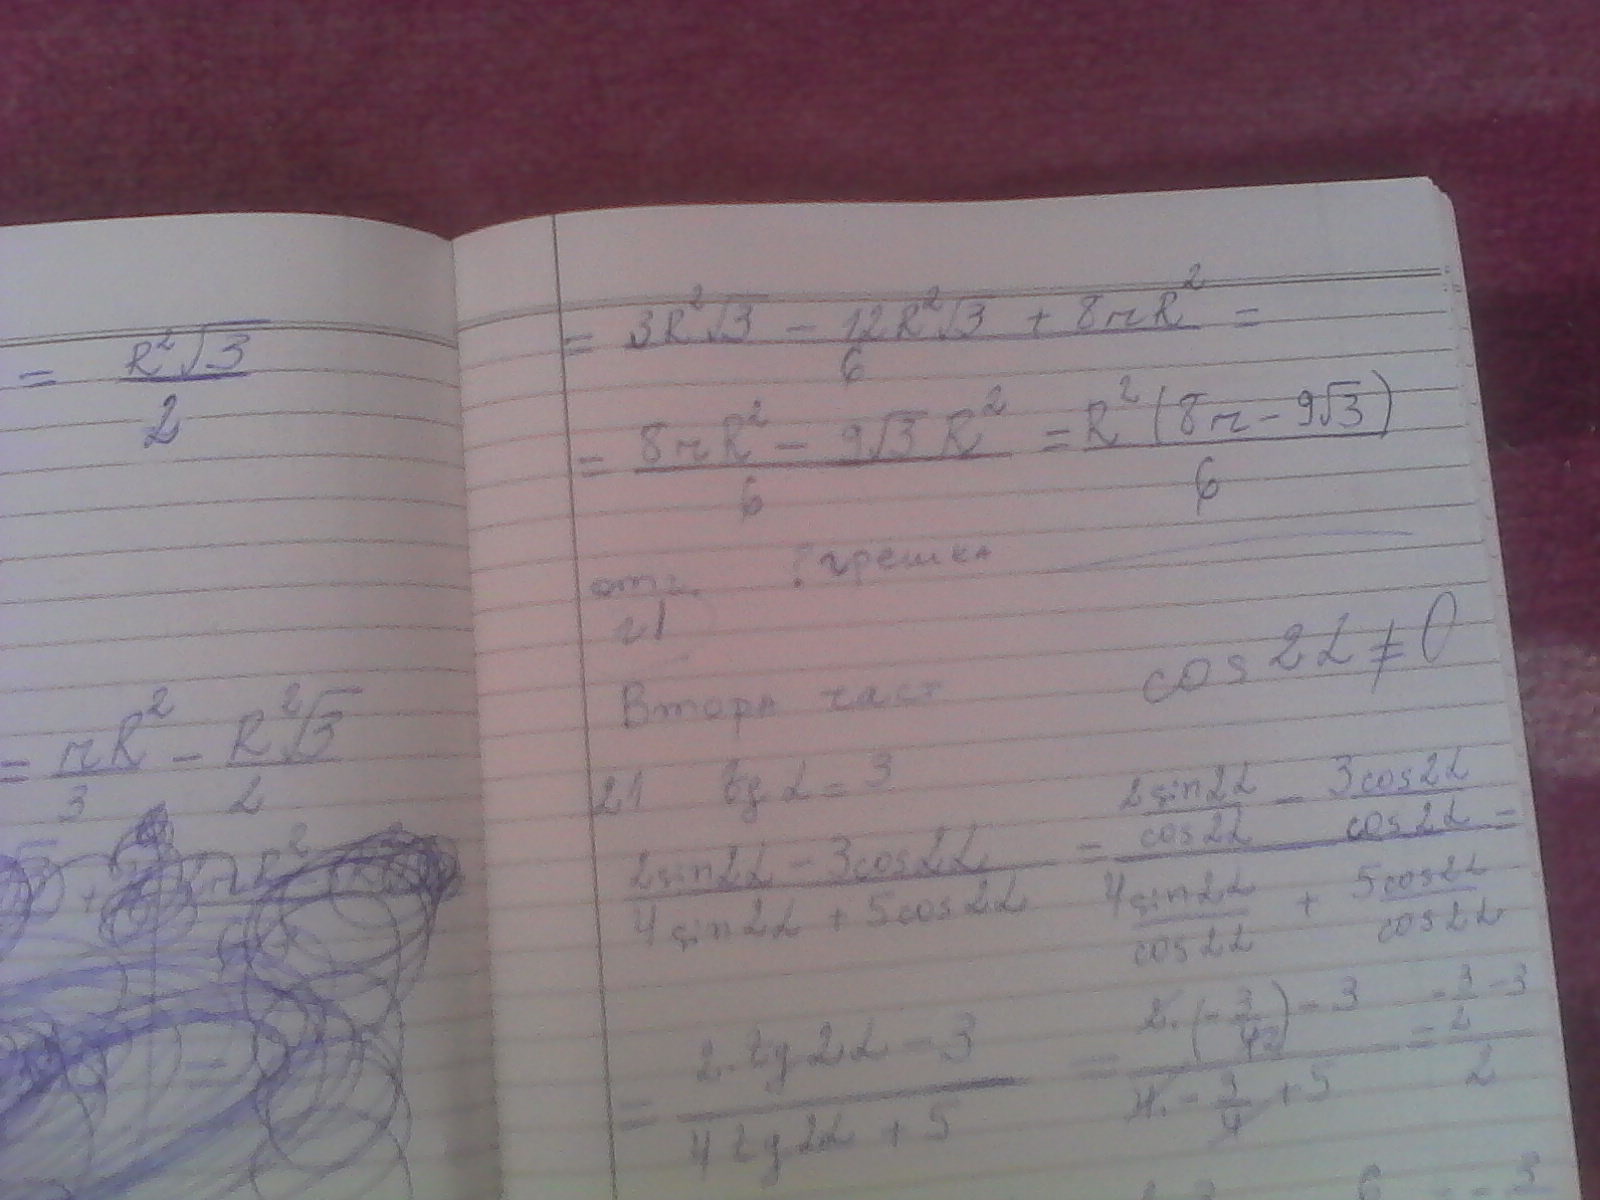 = R²√3 / 2
= πR² / 3 - R²√3 / 2
= 3R²√3 - 12R²√3 + 8πR² / 6 =
= 8πR² - 9√3R² / 6 = R²(8π - 9√3) / 6
отг. г) ! грешка
Втора част cos2α ≠ 0
21 tg α = 3
2sin2α - 3cos2α / 4sin2α + 5cos2α = 2sin2α / cos2α - 3cos2α / cos2α / 4sin2α / cos2α + 5cos2α / cos2α =
= 2.tg2α - 3 / 4tg2α + 5 = 2.(-3/42) - 3 / 4.-3/4 + 5 = -3/2 - 3 / 2